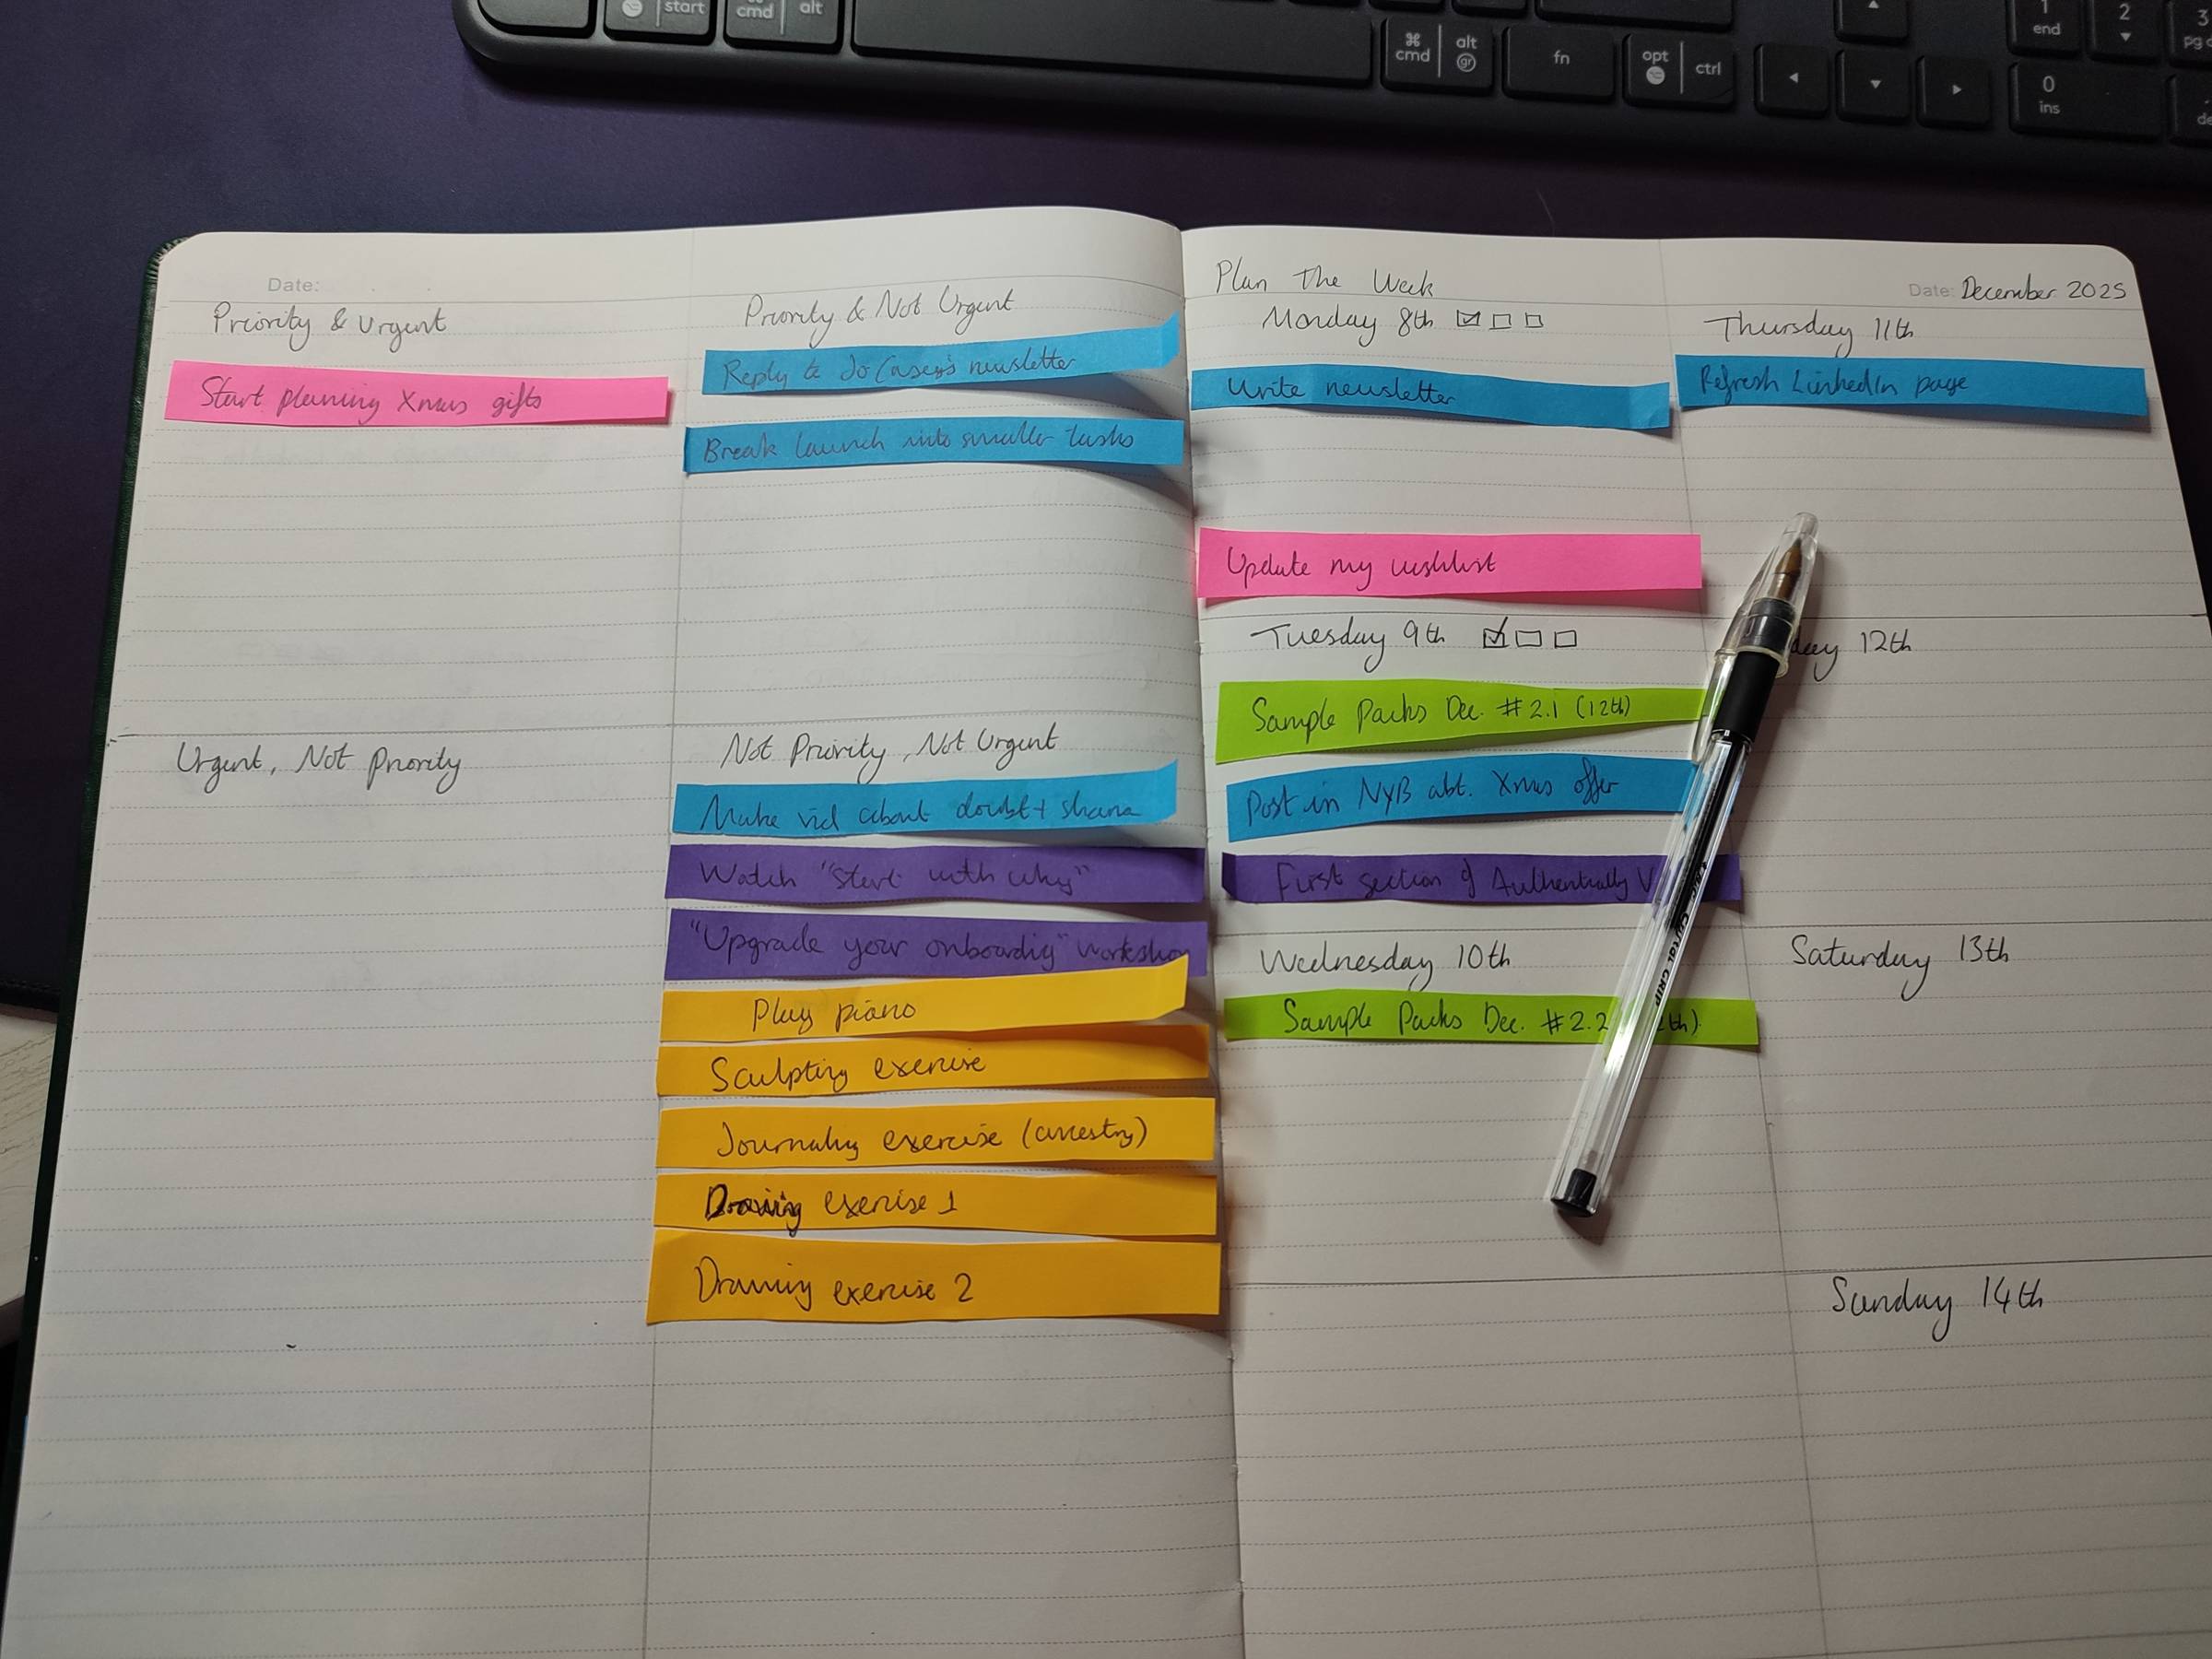 start
cmd alt
cmd alt gr
fn
opt ctrl
1 end
2
3
0 ins
Date:
Priority & Urgent
Start planning Xmas gifts
Priority & Not Urgent
Reply to Jo Casey's newsletter
Break launch into smaller tasks
Urgent, Not Priority
Not Priority, Not Urgent
Make vid about doubt + shame
Watch "Start with why"
"Upgrade your onboarding" workshop
Play piano
Sculpting exercise
Journaling exercise (ancestry)
Drawing exercise 1
Drawing exercise 2
Plan The Week
Monday 8th
Write newsletter
Update my wishlist
Tuesday 9th
Sample Packs Dec. #2.1 (12th)
Post in NYB abt. Xmas offer
First section of Authentically V
Wednesday 10th
Sample Packs Dec. #2.2 th)
Date: December 2025
Thursday 11th
Refresh LinkedIn page
day 12th
Saturday 13th
Sunday 14th